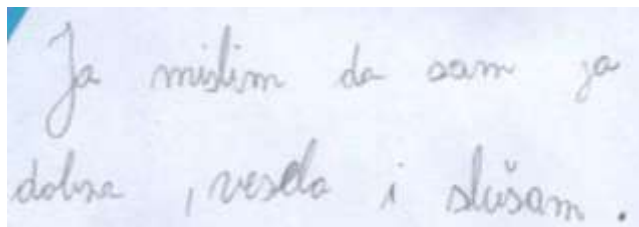 Ja mislim da sam ja
dobra , vesela i slušam .